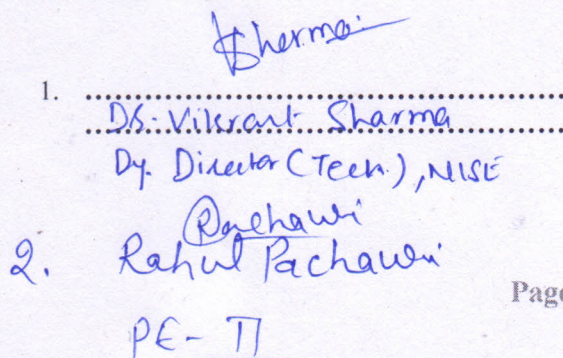 VSharma
1. ........................
Dr. Vikrant Sharma
Dy. Director (Tech.), NISE
Pachauri
2. Rahul Pachauri
Page
PE-II